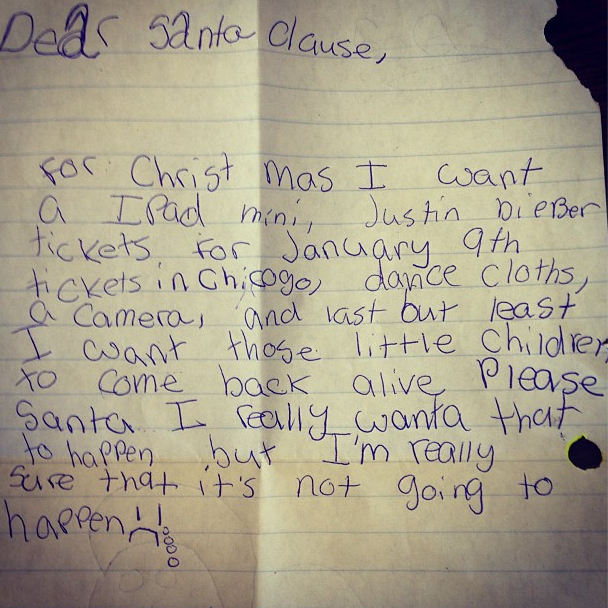 Dear Santa Clause,
For Christ mas I want
a IPad mini, Justin bieBer
tickets for January 9th
tickets in Chicogo, dance cloths,
a camera, and last but least
I want those little Children
to come back alive Please
Santa I really wanta that
to happen but I'm really
sure that it's not going to
happen